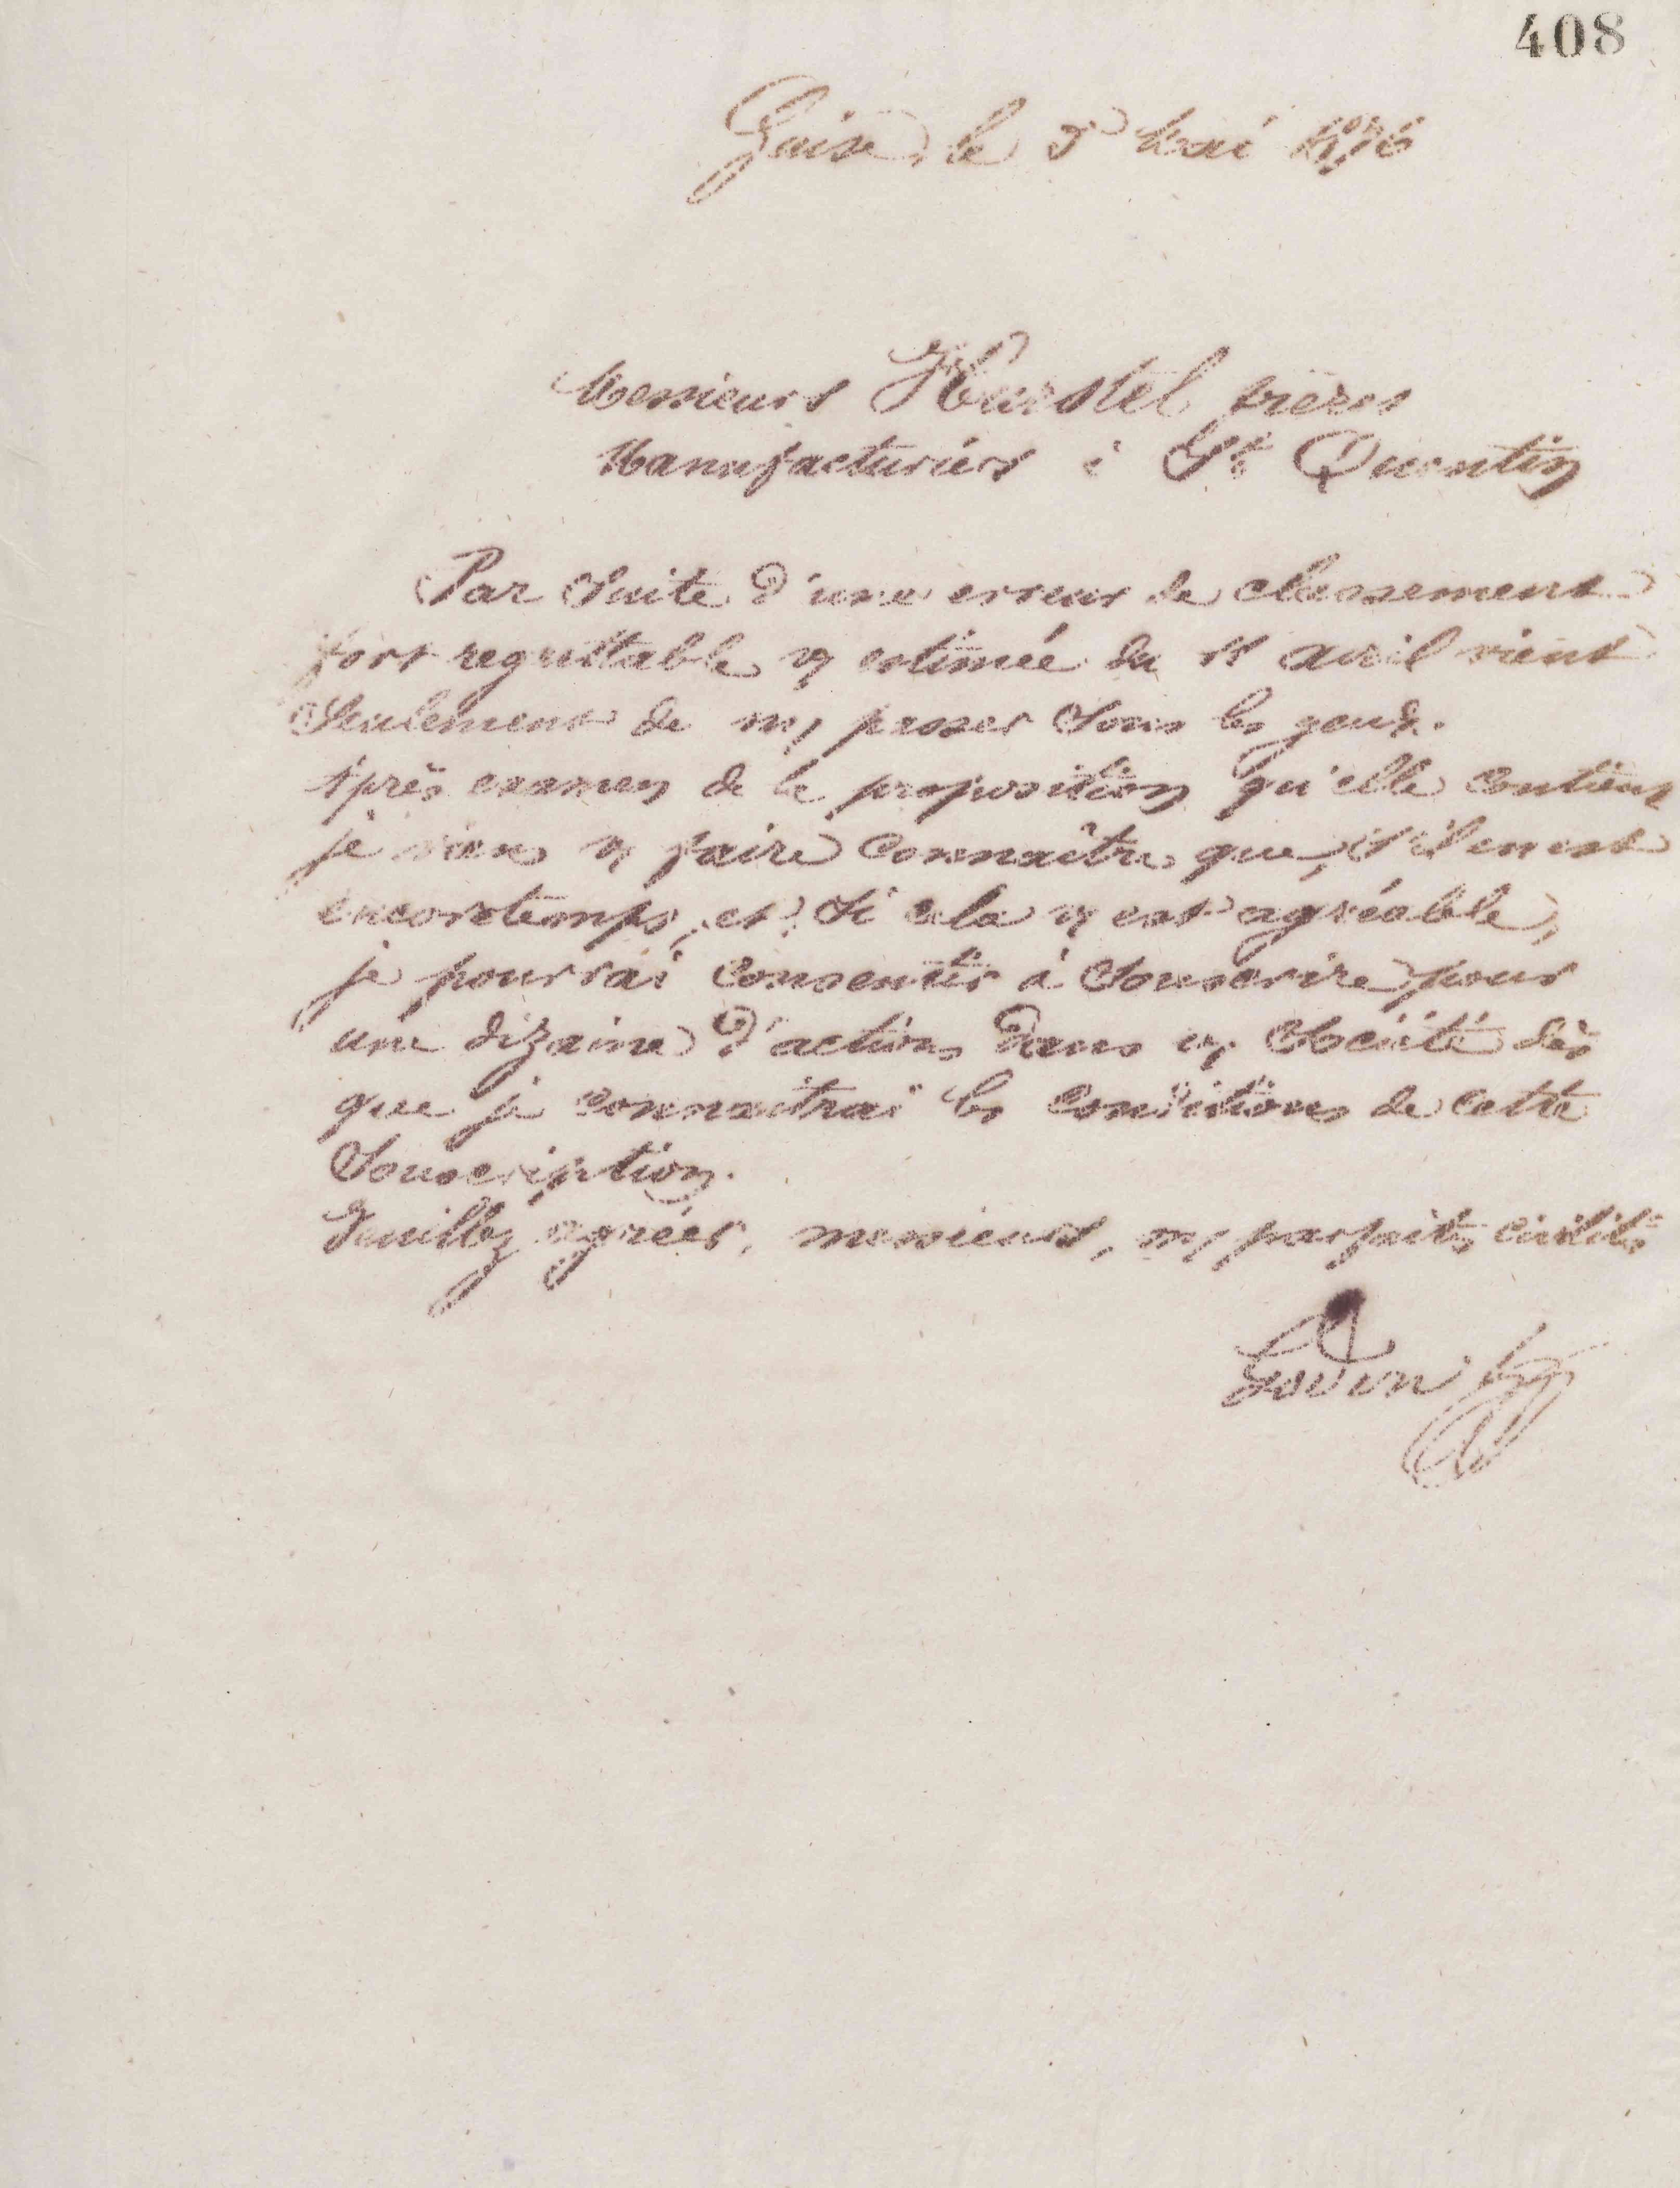 408
Guise, le 5 Mai 1876
Messieurs Hurstel frères
Manufacturiers à St Quentin
Par Suite d'une erreur de classement
fort regrettable v/ estimée du 11 avril vient
Seulement de m/ passer Sous les yeux.
Après examen de la proposition qu'elle contient
je viens v/ faire connaître que, s'il en est
encore temps, et Si cela v/ est agréable,
je pourrai consentir à Souscrire pour
une dizaine d'actions dans v/ Société dès
que je connaitrai les conditions de cette
Souscription.
Veuillez agréer, messieurs, m/ parfaites civilités
Godin